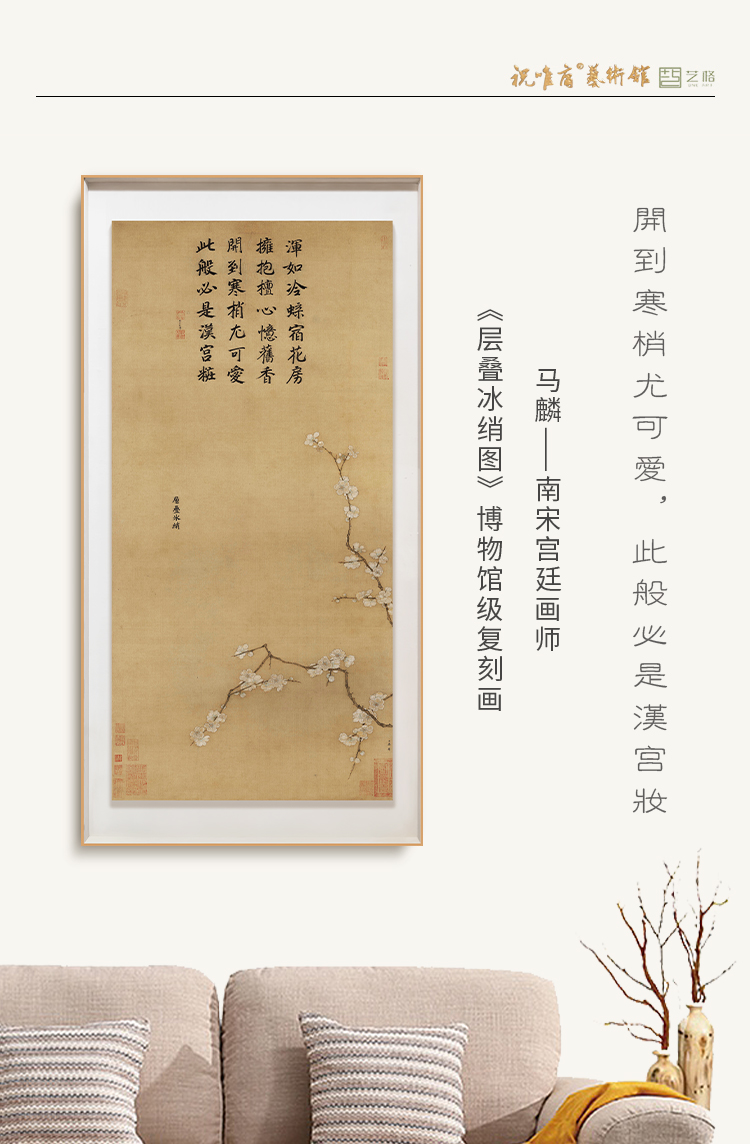 祝唯肓®藝術館 艺格
開到寒梢尤可愛，此般必是漢宫妝
马麟—南宋宫廷画师
《层叠冰绡图》博物馆级复刻画
渾如冷蜨宿花房
擁抱檀心憶舊香
開到寒梢尤可愛
此般必是漢宫粧
層疊冰綃